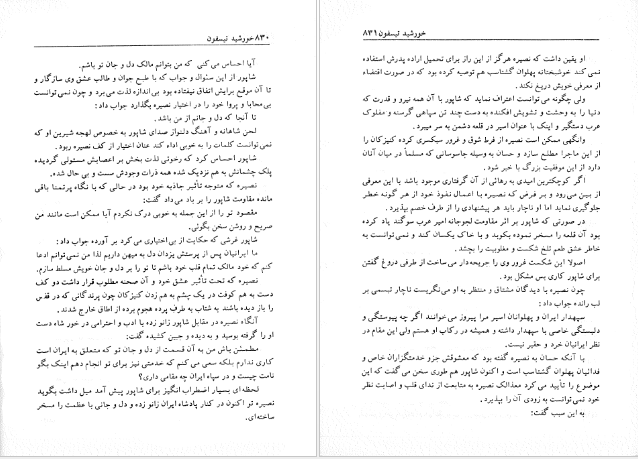 ۸۳۰ خورشید تیسفون
آیا احساس می کنی که من بتوانم مالک دل و جان تو باشم.
شاپور از این سئوال و جواب که با طبع جوان و طالب عشق وی سازگار و
تا آن موقع برایش اتفاق نیفتاده بود بی‌اندازه لذت می‌برد و چون نمی‌توانست
بی‌محابا و پروا خود را در اختیار نصیره بگذارد جواب داد:
تا آنجا که دل و جانم از من باشد.
لحن شاهانه و آهنگ دلنواز صدای شاپور به خصوص لهجه شیرین او که
نمی‌توانست کلمات را به خوبی ادا کند عنان اختیار از کف نصیره ربود.
شاپور احساس کرد که رخوتی لذت بخش بر اعصابش مستولی گردیده
پلک چشمانش به هم نزدیک شده همه ذرات وجودش سست و بی حال شده.
نصیره که متوجه تأثیر جاذبه خود بود در حالی که با نگاه پرتمنا باقی
مانده مقاومت شاپور را بر باد می‌داد گفت:
مقصود تو را از این جمله به خوبی درک نکردم آیا ممکن است مانند من
صریح و روشن سخن بگوئی.
شاپور غرشی که حکایت از بی‌اختیاری می‌کرد بر آورده جواب داد:
ما ایرانیان پس از پرستش یزدان دل به میهن داریم لذا من نمی‌توانم ادعا
کنم که خود مالک تمام قلب خود باشم تا تو را بر دل و جان خویش مسلط سازم.
نصیره که تحت تأثیر عشق خود و آن صحنه مطلوب قرار داشت دو کف
دست به هم کوفت در یک چشم به هم زدن کنیزکان چون پرندگانی که در قفس
را باز دیده باشند به شتاب به طرف پرده هجوم برده از اطاق خارج شدند.
آنگاه نصیره در مقابل شاپور زانو زده با ادب و احترامی در خور شاه دست
او را گرفته بوسید و به دیده و جبین کشیده گفت:
مطمئن باش من به آن قسمت از دل و جان تو که متعلق به ایران است
کاری ندارم بلکه سعی می کنم که خدمتی نیز برای تو انجام دهم اینک بگو
نامت چیست و در سپاه ایران چه مقامی داری؟
لحظه ای بسیار اضطراب انگیز برای شاپور پیش آمد میل داشت بگوید
نصیره تو اکنون در کنار پادشاه ایران زانو زده و دل و جانی با عظمت را مسخر
ساخته‌ای.
خورشید تیسفون ۸۳۱
او یقین داشت که نصیره هرگز از این راز برای تحمیل اراده پدرش استفاده
نمی کند خوشبختانه پهلوان گشتاسب هم توصیه کرده بود که در صورت اقتضاء
از معرفی خویش دریغ نکند.
ولی چگونه می توانست اعتراف نماید که شاپور با آن همه نیرو و قدرت که
دنیا را به وحشت و تشویش افکنده به دست چند تن سپاهی گرسنه و مفلوک
عرب دستگیر و اینک با عنوان اسیر در قلعه دشمن به سر میبرد.
وانگهی ممکن است نصیره از فرط شوق و غرور سبکسری کرده کنیزکان را
از این ماجرا مطلع سازد و حسان به وسیله جاسوسانی که مسلماً در میان آنان
دارد از این موفقیت بزرگ با خبر شود.
اگر کوچکترین امیدی به رهائی از آن گرفتاری موجود باشد با این معرفی
از بین می‌رود و بر فرض که نصیره با اعمال نفوذ خود از هر گونه خطر
جلوگیری نماید اما او ناچار باید هر پیشنهادی را از طرف خصم بپذیرد.
در صورتی که شاپور بر اثر مقاومت لجوجانه امیر عرب سوگند یاد کرده
بود آن قلعه را مسخر نموده بکوبد و با خاک یکسان کند و نمی‌توانست به
خاطر عشق طعم تلخ شکست و مغلوبیت را بچشد.
اصولا این شکست غرور وی را جریحه‌دار می‌ساخت از طرفی دروغ گفتن
برای شاپور کاری بس مشکل بود.
چون نصیره با دیدگان مشتاق و منتظر به او می‌نگریست ناچار تبسمی بر
لب رانده جواب داد:
سپهدار ایران و پهلوانان اسیر مرا پیروز می‌خوانند اگر چه پیوستگی و
دلبستگی خاصی با سپهدار داشته و همیشه در رکاب او هستم ولی این مقام در
نظر ایرانیان خرد و حقیر نیست.
با آنکه حسان به نصیره گفته بود که معشوقش جزو خدمتگزاران خاص و
فدائیان پهلوان گشتاسب است و اکنون شاپور هم طوری سخن می گفت که این
موضوع را تأیید می کرد معذالک نصیره به متابعت از ندای قلب و اصابت نظر
خود نمی‌توانست به زودی آن را بپذیرد.
به این سبب گفت: